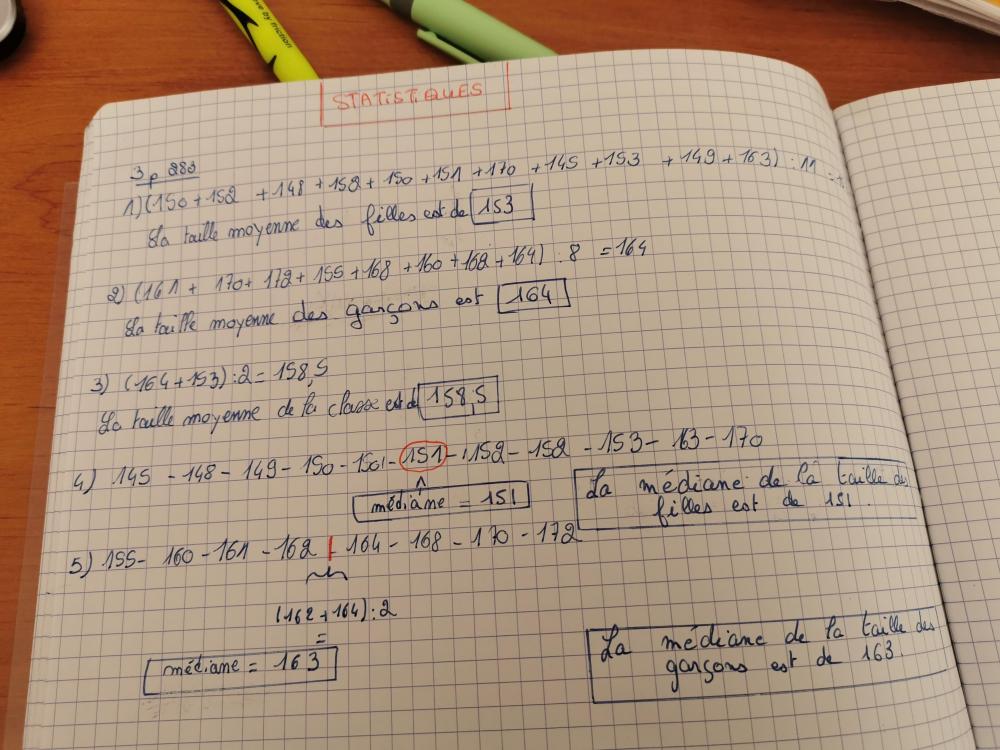 ove by friction
STATISTIQUES
3 p 283
1) (150 + 152 + 148 + 152 + 150 + 151 + 170 + 145 + 153 + 149 + 163) : 11 =
La taille moyenne des filles est de 153
2) (161 + 170 + 172 + 155 + 168 + 160 + 162 + 164) : 8 = 164
La taille moyenne des garçons est 164
3) (164 + 153) : 2 = 158,5
La taille moyenne de la classe est de 158,5
4) 145 - 148 - 149 - 150 - 150 - 151 - 152 - 152 - 153 - 163 - 170
médiane = 151
La médiane de la taille des
filles est de 151.
5) 155 - 160 - 161 - 162 | 164 - 168 - 170 - 172
(162 + 164) : 2
=
médiane = 163
La médiane de la taille des
garçons est de 163.